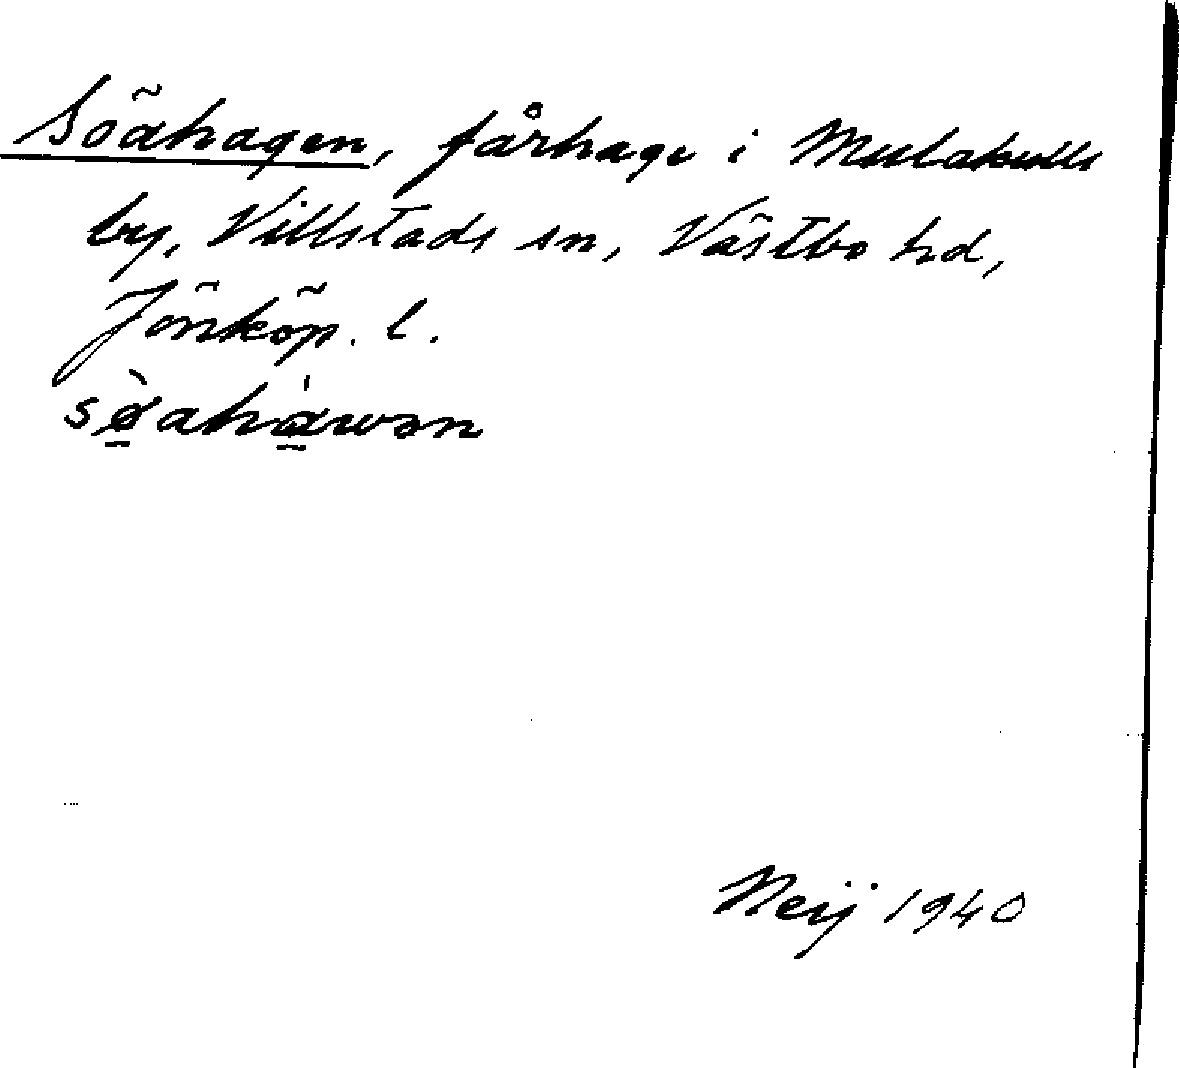 Söahagen, fårhage i Mulakulls
by, Villstads sn, Västbo hd,
Jönköp. l.
sø̀ahàwən
Neij 1940